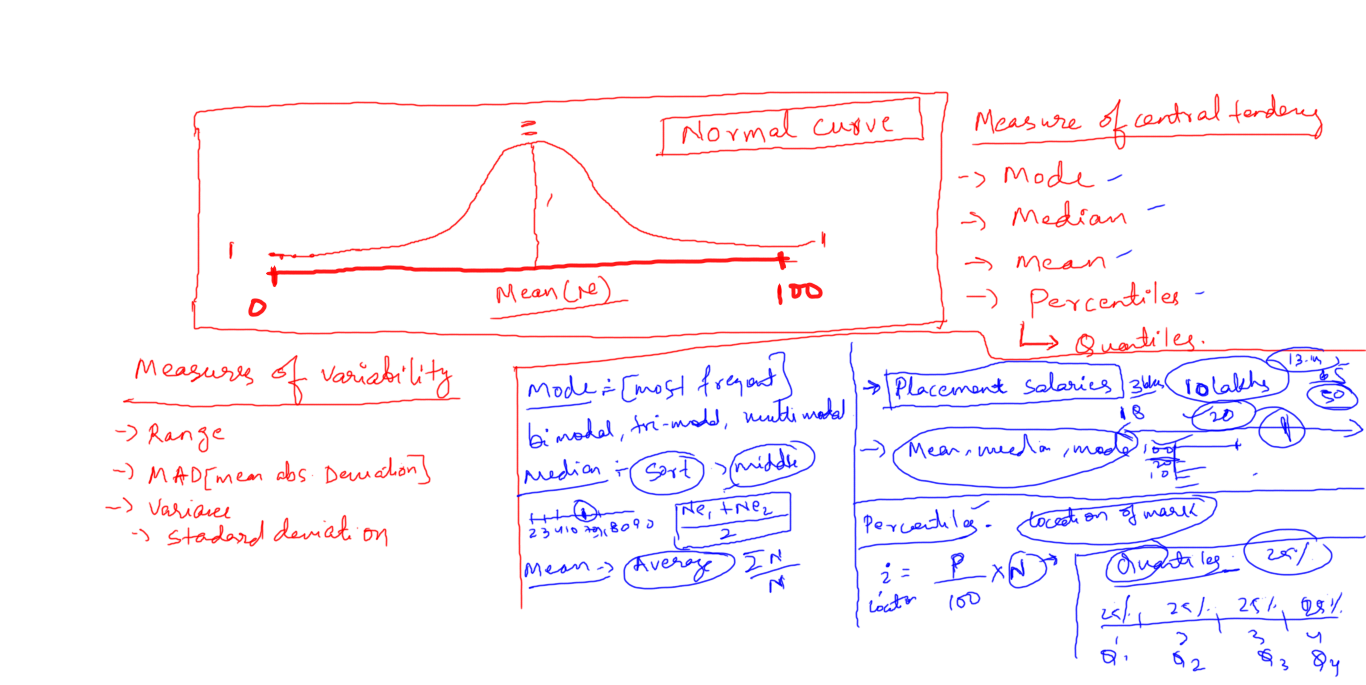 Normal curve
1
1
0
100
Mean (Ne)
Measure of central tendency
-> Mode
-> Median
-> mean
-> Percentiles
-> Quantiles.
Measures of variability
-> Range
-> MAD [mean abs. Deviation]
-> Variance
-> stadard deviation
Mode :- [most freqent]
bimodal, tri-modal, multimodal
Median :- sort > middle
Ne1 + Ne2
2
Mean -> Average ΣN
N
-> Placement salaries
10 lakhs
50
18
20
-> Mean, media, mode
Percentiles - location of mark
i = P
100
× N ->
Quantiles 25%
25% 25% 25% 25%
1 2 3 4
Q1 Q2 Q3 Q4